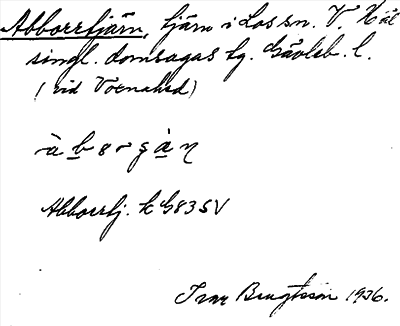 Abborrtjärn, tjärn i Los sn. V. Häl
singl. domsagas tg. Gävleb. l.
(vid Voxnahed)
àbergàn
Abborrtj. k G83SV
Ivar Bengtsson 1936.